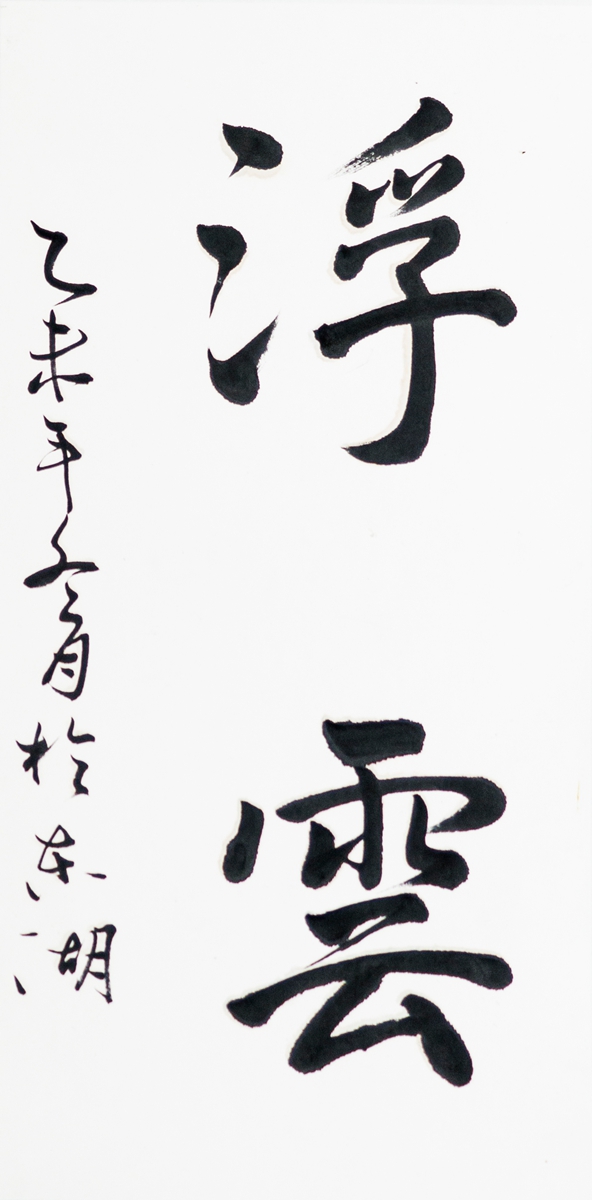 浮雲
乙未年冬月於东湖